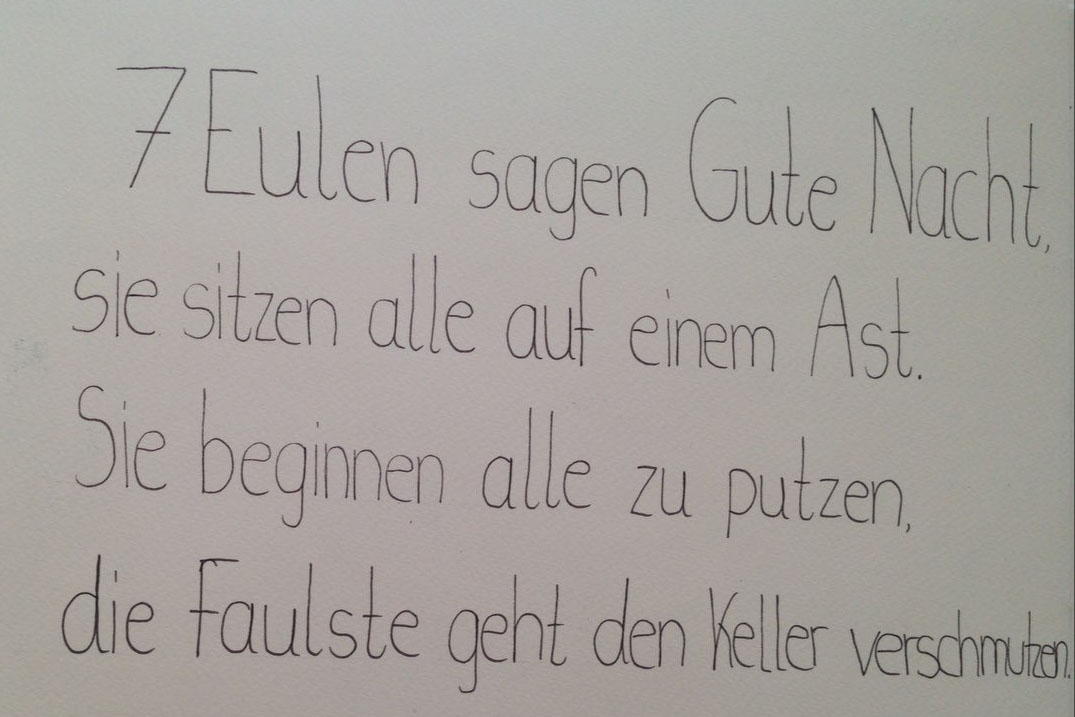 7 Eulen sagen Gute Nacht,
sie sitzen alle auf einem Ast.
Sie beginnen alle zu putzen,
die Faulste geht den Keller verschmutzen.